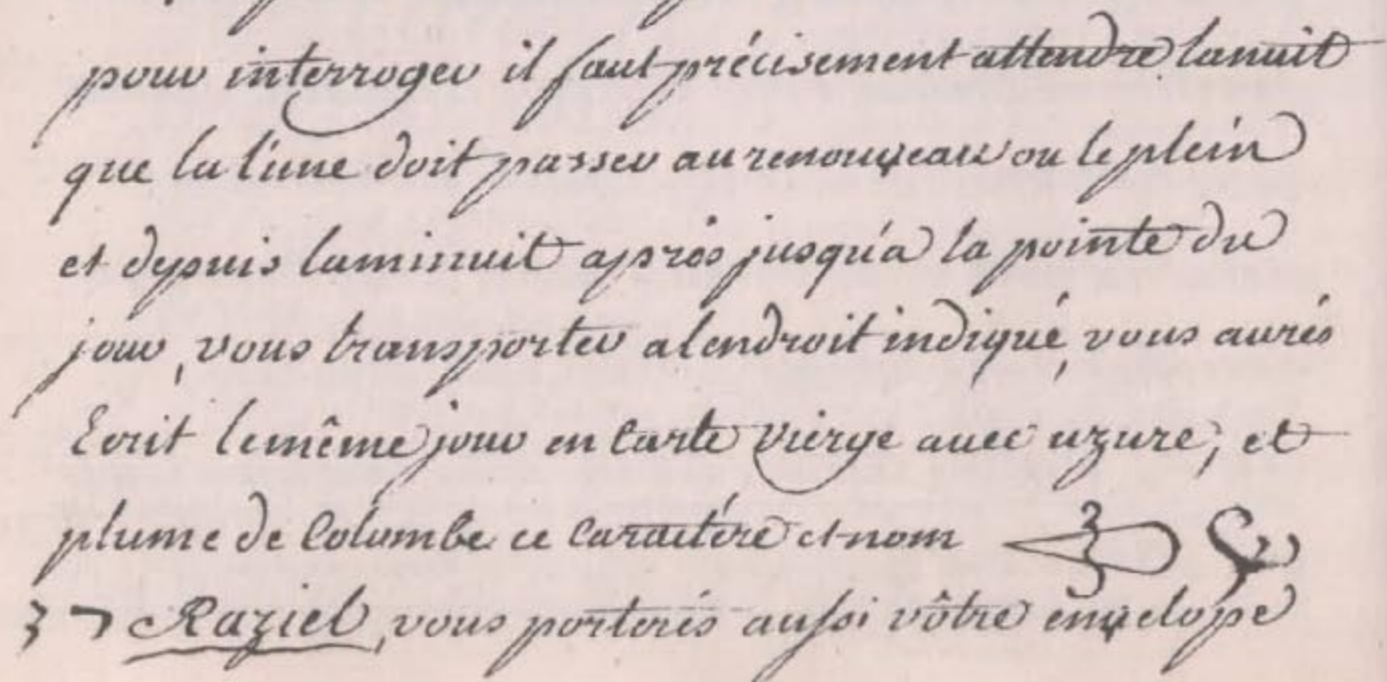 pour interroger il faut précisement attendre lanuit
que la lune doit passer au renouveau ou le plein
et depuis laminuit après jusqu'a la pointe du
jour, vous transporter a lendroit indiqué, vous aurés
Ecrit le même jour en Carte vierge avec azure, et
plume de Colombe ce Caractére et nom
Raziel, vous porterés aussi vôtre envelope